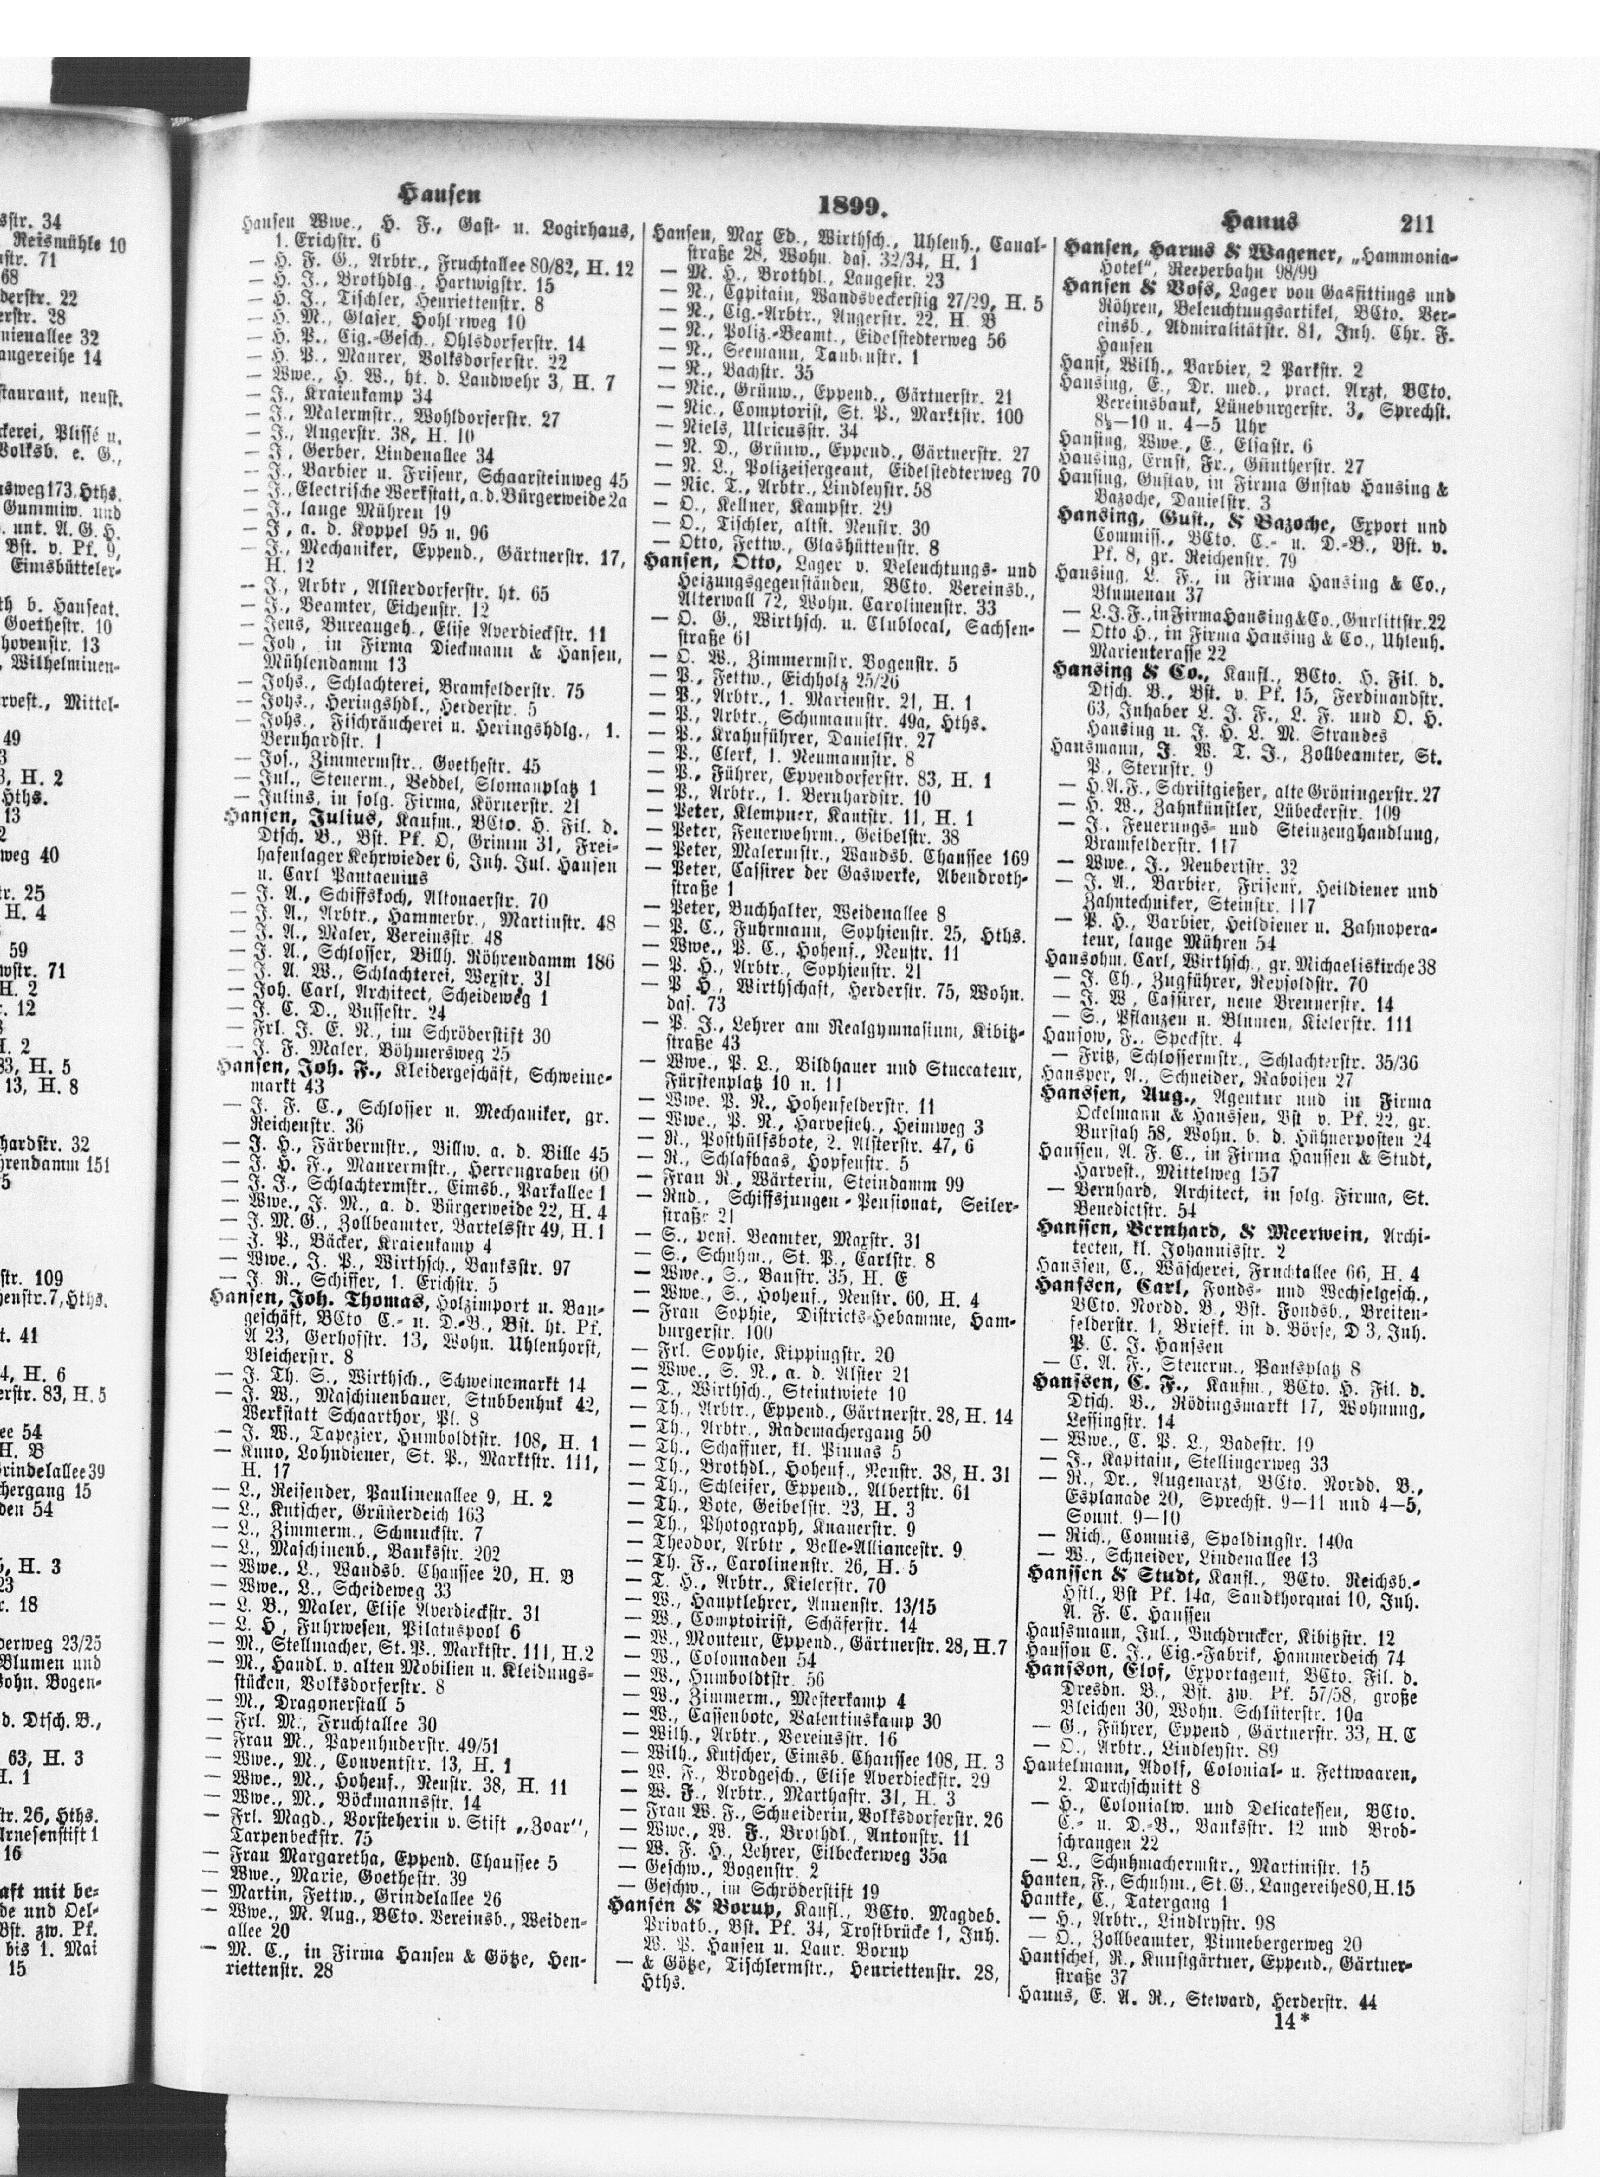 sstr. 34
Reismühle 10
nstr. 71
68
derstr. 22
erstr. 28
nienallee 32
angereihe 14
staurant, neust.
ckerei, Plissé u.
Volksb. e. G.,
nsweg 173, Hths.
Gummiw. und
unt. A. G. H.
Bst. v. Pf. 9,
Eimsbütteler-
th b. Hanseat.
Goethestr. 10
hovenstr. 13
, Wilhelminen-
rvest., Mittel-
49
3, H. 2
Hths.
13
weg 40
tr. 25
H. 4
59
wstr. 71
H. 2
r. 12
H. 2
83, H. 5
13, H. 8
hardstr. 32
hrendamm 151
5
str. 109
henstr. 7, Hths.
t. 41
4, H. 6
erstr. 83, H. 5
ee 54
H. B
Grindelallee 39
chergang 15
den 54
5, H. 3
23
r. 18
derweg 23/25
Blumen und
Wohn. Bogen-
d. Dtsch. B.,
63, H. 3
H. 1
tr. 26, Hths.
Arnesenstift 1
16
aft mit be-
de und Oel-
Bst. zw. Pf.
bis 1. Mai
15
Hansen
1899.
Hanus
211
Hansen Wwe., H. F., Gast- u. Logirhaus,
1. Erichstr. 6
— H. F. G., Arbtr., Fruchtallee 80/82, H. 12
— H. J., Brothdlg., Hartwigstr. 15
— H. J., Tischler, Henriettenstr. 8
— H. M., Glaser, Hohlerweg 10
— H. P., Cig.-Gesch., Ohlsdorferstr. 14
— H. P., Maurer, Volksdorferstr. 22
— Wwe., H. W., ht. d. Landwehr 3, H. 7
— J., Kraienkamp 34
— J., Malermstr., Wohldorferstr. 27
— J., Angerstr. 38, H. 10
— J., Gerber, Lindenallee 34
— J., Barbier u. Friseur, Schaarsteinweg 45
— J., Electrische Werkstatt, a. d. Bürgerweide 2a
— J., lange Mühren 19
— J., a. d. Koppel 95 u. 96
— J., Mechaniker, Eppend., Gärtnerstr. 17,
H. 12
— J., Arbtr., Alsterdorferstr. ht. 65
— J., Beamter, Eichenstr. 12
— Jens, Bureaugeh., Elise Averdieckstr. 11
— Joh., in Firma Dieckmann & Hansen,
Mühlendamm 13
— Johs., Schlachterei, Bramfelderstr. 75
— Johs., Heringshdl., Herderstr. 5
— Johs., Fischräucherei u. Heringshdlg., 1.
Bernhardstr. 1
— Jos., Zimmermstr., Goethestr. 45
— Jul., Steuerm., Veddel, Slomanplatz 1
— Julius, in folg. Firma, Körnerstr. 21
Hansen, Julius, Kaufm., BCto. H. Fil. d.
Dtsch. B., Bst. Pf. O, Grimm 31, Frei-
hafenlager Kehrwieder 6, Inh. Jul. Hansen
u. Carl Pantaenius
— J. A., Schiffskoch, Altonaerstr. 70
— J. A., Arbtr., Hammerbr., Martinstr. 48
— J. A., Maler, Vereinsstr. 48
— J. A., Schlosser, Billh. Röhrendamm 186
— J. A. W., Schlachterei, Wexstr. 31
— Joh. Carl, Architect, Scheideweg 1
— J. C. D., Bussestr. 24
— Frl. J. E. N., im Schröderstift 30
— J. F. Maler, Böhmersweg 25
Hansen, Joh. F., Kleidergeschäft, Schweine-
markt 43
— J. F. C., Schlosser u. Mechaniker, gr.
Reichenstr. 36
— J. H., Färbermstr., Billw. a. d. Bille 45
— J. H. F., Maurermstr., Herrengraben 60
— J. J., Schlachtermstr., Eimsb., Parkallee 1
— Wwe., J. M., a. d. Bürgerweide 22, H. 4
— J. M. G., Zollbeamter, Bartelsstr 49, H. 1
— J. P., Bäcker, Kraienkamp 4
— Wwe., J. P., Wirthsch., Banksstr. 97
— J. R., Schiffer, 1. Erichstr. 5
Hansen, Joh. Thomas, Holzimport u. Bau-
geschäft, BCto C.- u. D.-B., Bst. ht. Pf.
A 23, Gerhofstr. 13, Wohn. Uhlenhorst,
Bleicherstr. 8
— J. Th. S., Wirthsch., Schweinemarkt 14
— J. W., Maschinenbauer, Stubbenhuk 42,
Werkstatt Schaarthor, Pl. 8
— J. W., Tapezier, Humboldtstr. 108, H. 1
— Kuno, Lohndiener, St. P., Marktstr. 111,
H. 17
— L., Reisender, Paulinenallee 9, H. 2
— L., Kutscher, Grünerdeich 163
— L., Zimmerm., Schmuckstr. 7
— L., Maschinenb., Banksstr. 202
— Wwe., L., Wandsb. Chaussee 20, H. B
— Wwe., L., Scheideweg 33
— L. B., Maler, Elise Averdieckstr. 31
— L. H., Fuhrwesen, Pilatuspool 6
— M., Stellmacher, St. P., Marktstr. 111, H. 2
— M., Handl. v. alten Mobilien u. Kleidungs-
stücken, Volksdorferstr. 8
— M., Dragonerstall 5
— Frl. M., Fruchtallee 30
— Frau M., Papenhuderstr. 49/51
— Wwe., M., Conventstr. 13, H. 1
— Wwe., M., Hohenf., Neustr. 38, H. 11
— Wwe., M., Böckmannsstr. 14
— Frl. Magd., Vorsteherin v. Stift „Zoar“,
Tarpenbeckstr. 75
— Frau Margaretha, Eppend. Chaussee 5
— Wwe., Marie, Goethestr. 39
— Martin, Fettw., Grindelallee 26
— Wwe., M. Aug., BCto. Vereinsb., Weiden-
allee 20
— M. C., in Firma Hansen & Götze, Hen-
riettenstr. 28
Hansen, Max Ed., Wirthsch., Uhlenh., Canal-
straße 28, Wohn. das. 32/34, H. 1
— M. H., Brothdl., Langestr. 23
— N., Capitain, Wandsbeckerstig 27/29, H. 5
— N., Cig.-Arbtr., Angerstr. 22, H. B
— N., Poliz.-Beamt., Eidelstedterweg 56
— N., Seemann, Taubenstr. 1
— N., Bachstr. 35
— Nic., Grünw., Eppend., Gärtnerstr. 21
— Nic., Comptorist, St. P., Marktstr. 100
— Niels, Ulricusstr. 34
— N. D., Grünw., Eppend., Gärtnerstr. 27
— N. L., Polizeisergeant, Eidelstedterweg 70
— Nic. T., Arbtr., Lindleystr. 58
— O., Kellner, Kampstr. 29
— O., Tischler, altst. Neustr. 30
— Otto, Fettw., Glashüttenstr. 8
Hansen, Otto, Lager v. Beleuchtungs- und
Heizungsgegenständen, BCto. Vereinsb.,
Alterwall 72, Wohn. Carolinenstr. 33
— O. G., Wirthsch. u. Clublocal, Sachsen-
straße 61
— O. W., Zimmermstr. Bogenstr. 5
— P., Fettw., Eichholz 25/26
— P., Arbtr., 1. Marienstr. 21, H. 1
— P., Arbtr., Schumannstr. 49a, Hths.
— P., Krahnführer, Danielstr. 27
— P., Clerk, 1. Neumannstr. 8
— P., Führer, Eppendorferstr. 83, H. 1
— P., Arbtr., 1. Bernhardstr. 10
— Peter, Klempner, Kantstr. 11, H. 1
— Peter, Feuerwehrm., Geibelstr. 38
— Peter, Malermstr., Wandsb. Chaussee 169
— Peter, Cassirer der Gaswerke, Abendroth-
straße 1
— Peter, Buchhalter, Weidenallee 8
— P. C., Fuhrmann, Sophienstr. 25, Hths.
— Wwe., P. C., Hohenf., Neustr. 11
— P. H., Arbtr., Sophienstr. 21
— P. H., Wirthschaft, Herderstr. 75, Wohn.
das. 73
— P. J., Lehrer am Realgymnasium, Kibitz-
straße 43
— Wwe., P. L., Bildhauer und Stuccateur,
Fürstenplatz 10 u. 11
— Wwe. P. N., Hohenfelderstr. 11
— Wwe., P. N., Harvesteh., Heimweg 3
— R., Posthülfsbote, 2. Alsterstr. 47, 6
— R., Schlafbaas, Hopfenstr. 5
— Frau R., Wärterin, Steindamm 99
— Rud., Schiffsjungen-Pensionat, Seiler-
straße 21
— S., pens. Beamter, Maxstr. 31
— S., Schuhm., St. P., Carlstr. 8
— Wwe., S., Baustr. 35, H. E
— Wwe., S., Hohenf., Neustr. 60, H. 4
— Frau Sophie, Districts-Hebamme, Ham-
burgerstr. 100
— Frl. Sophie, Kippingstr. 20
— Wwe., S. N., a. d. Alster 21
— T., Wirthsch., Steintwiete 10
— Th., Arbtr., Eppend., Gärtnerstr. 28, H. 14
— Th., Arbtr., Rademachergang 50
— Th., Schaffner, kl. Pinnas 5
— Th., Brothdl., Hohenf., Neustr. 38, H. 31
— Th., Schleifer, Eppend., Albertstr. 61
— Th., Bote, Geibelstr. 23, H. 3
— Th., Photograph, Knauerstr. 9
— Theodor, Arbtr., Belle-Alliancestr. 9
— Th. F., Carolinenstr. 26, H. 5
— T. H., Arbtr., Kielerstr. 70
— W., Hauptlehrer, Annenstr. 13/15
— W., Comptoirist, Schäferstr. 14
— W., Monteur, Eppend., Gärtnerstr. 28, H. 7
— W., Colonnaden 54
— W., Humboldtstr. 56
— W., Zimmerm., Mesterkamp 4
— W., Cassenbote, Valentinskamp 30
— Wilh., Arbtr., Vereinsstr. 16
— Wilh., Kutscher, Eimsb. Chaussee 108, H. 3
— W. F., Brodgesch., Elise Averdieckstr. 29
— W. F., Arbtr., Marthastr. 31, H. 3
— Frau W. F., Schneiderin, Volksdorferstr. 26
— Wwe., W. F., Brothdl., Antonstr. 11
— W. F. H., Lehrer, Eilbeckerweg 35a
— Geschw., Bogenstr. 2
— Geschw., im Schröderstift 19
Hansen & Borup, Kaufl., BCto. Magdeb.
Privatb., Bst. Pf. 34, Trostbrücke 1, Inh.
W. P. Hansen u. Laur. Borup
— & Götze, Tischlermstr., Henriettenstr. 28,
Hths.
Hansen, Harms & Wagener, „Hammonia-
Hotel“, Reeperbahn 98/99
Hansen & Voss, Lager von Gasfittings und
Röhren, Beleuchtungsartikel, BCto. Ver-
einsb., Admiralitätstr. 81, Inh. Chr. F.
Hansen
Hansi, Wilh., Barbier, 2 Parkstr. 2
Hansing, E., Dr. med., pract. Arzt, BCto.
Vereinsbank, Lüneburgerstr. 3, Sprechst.
8½—10 u. 4—5 Uhr
Hansing, Wwe., E., Elsastr. 6
Hansing, Ernst, Fr., Güntherstr. 27
Hansing, Gustav, in Firma Gustav Hansing &
Bazoche, Danielstr. 3
Hansing, Gust., & Bazoche, Export und
Commiss., BCto. C.- u. D.-B., Bst. v.
Pf. 8, gr. Reichenstr. 79
Hansing, L. F., in Firma Hansing & Co.,
Blumenau 37
— L. J. F., in Firma Hansing & Co., Gurlittstr. 22
— Otto H., in Firma Hansing & Co., Uhlenh.
Marienterasse 22
Hansing & Co., Kaufl., BCto. H. Fil. d.
Dtsch. B., Bst. v. Pf. 15, Ferdinandstr.
63, Inhaber L. J. F., L. F. und O. H.
Hansing u. J. H. L. M. Strandes
Hansmann, J. W. T. J., Zollbeamter, St.
P., Sternstr. 9
— H. A. F., Schriftgießer, alte Gröningerstr. 27
— H. W., Zahnkünstler, Lübeckerstr. 109
— J., Feuerungs- und Steinzeughandlung,
Bramfelderstr. 117
— Wwe., J., Neubertstr. 32
— J. A., Barbier, Friseur, Heildiener und
Zahntechniker, Steinstr. 117
— P. H., Barbier, Heildiener u. Zahnopera-
teur, lange Mühren 54
Hansohm, Carl, Wirthsch., gr. Michaeliskirche 38
— J. Ch., Zugführer, Repsoldstr. 70
— J. W., Cassirer, neue Brennerstr. 14
— S., Pflanzen u. Blumen, Kielerstr. 111
Hansow, F., Speckstr. 4
— Fritz, Schlossermstr., Schlachterstr. 35/36
Hansper, A., Schneider, Raboisen 27
Hanssen, Aug., Agentur und in Firma
Ockelmann & Hanssen, Bst v. Pf. 22, gr.
Burstah 58, Wohn. b. d. Hühnerposten 24
Hanssen, A. F. C., in Firma Hanssen & Studt,
Harvest., Mittelweg 157
— Bernhard, Architect, in folg. Firma, St.
Benedictstr. 54
Hanssen, Bernhard, & Meerwein, Archi-
tecten, kl. Johannisstr. 2
Hanssen, C., Wäscherei, Fruchtallee 66, H. 4
Hanssen, Carl, Fonds- und Wechselgesch.,
BCto. Nordd. B., Bst. Fondsb., Breiten-
felderstr. 1, Briefk. in d. Börse, D 3, Inh.
P. C. J. Hanssen
— C. A. F., Steuerm., Paulsplatz 8
Hanssen, C. F., Kaufm., BCto. H. Fil. d.
Dtsch. B., Rödingsmarkt 17, Wohnung,
Lessingstr. 14
— Wwe., C. P. L., Badestr. 19
— J., Kapitain, Stellingerweg 33
— R., Dr., Augenarzt, BCto. Nordd. B.,
Esplanade 20, Sprechst. 9—11 und 4—5,
Sonnt. 9—10
— Rich., Commis, Spaldingstr. 140a
— W., Schneider, Lindenallee 13
Hanssen & Studt, Kaufl., BCto. Reichsb.-
Hstl., Bst Pf. 14a, Sandthorquai 10, Inh.
A. F. C. Hanssen
Hanssmann, Jul., Buchdrucker, Kibitzstr. 12
Hansson C. J., Cig.-Fabrik, Hammerdeich 74
Hansson, Elof, Exportagent, BCto. Fil. d.
Dresdn. B., Bst. zw. Pf. 57/58, große
Bleichen 30, Wohn. Schlüterstr. 10a
— G., Führer, Eppend., Gärtnerstr. 33, H. C
— O., Arbtr., Lindleystr. 89
Hantelmann, Adolf, Colonial- u. Fettwaaren,
2. Durchschnitt 8
— H., Colonialw. und Delicatessen, BCto.
C.- u. D.-B., Banksstr. 12 und Brod-
schrangen 22
— L., Schuhmachermstr., Martinistr. 15
Hanten, F., Schuhm., St. G., Langereihe 80, H. 15
Hantke, C., Tatergang 1
— H., Arbtr., Lindleystr. 98
— O., Zollbeamter, Pinnebergerweg 20
Hantschel, R., Kunstgärtner, Eppend., Gärtner-
straße 37
Hanus, E. A. R., Steward, Herderstr. 44
14*